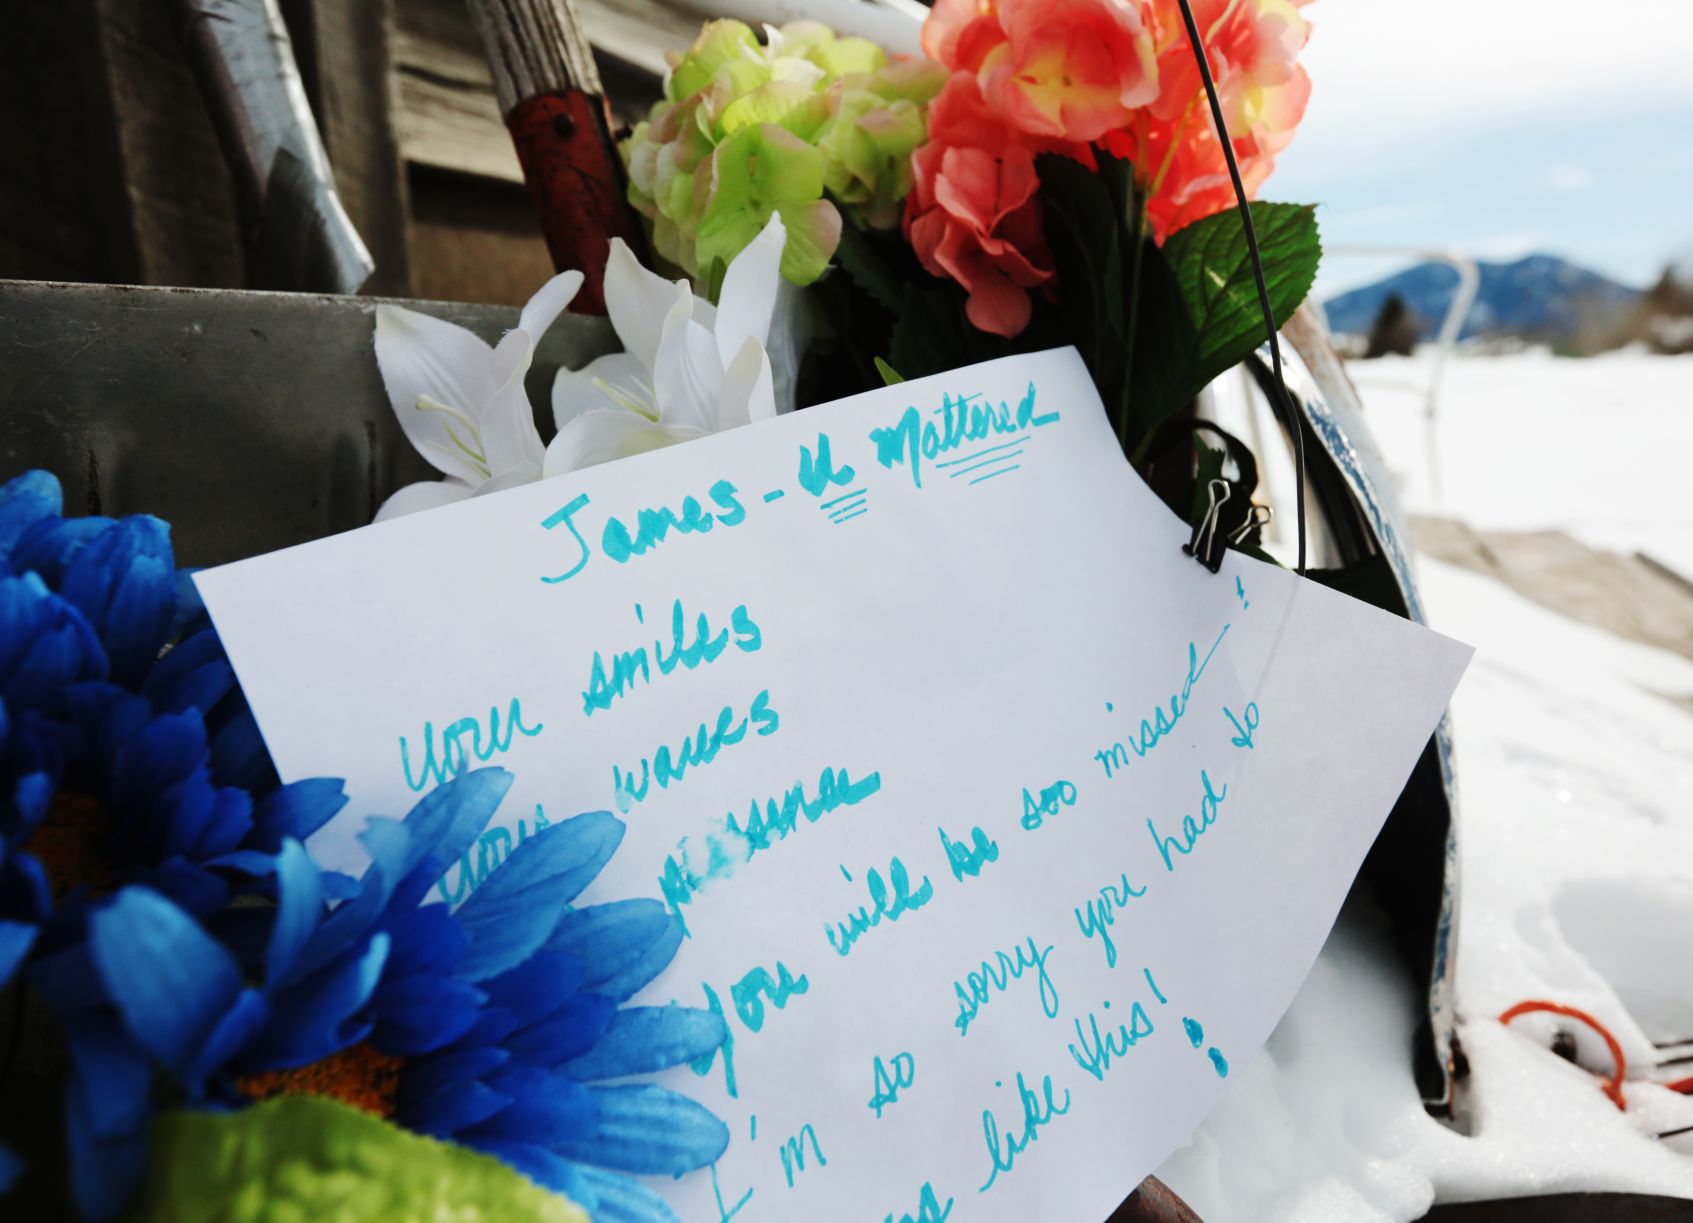 James - U Mattered
Your smiles
Your waves
presence
You will be soo missed!
I'm so sorry you had to
like this!